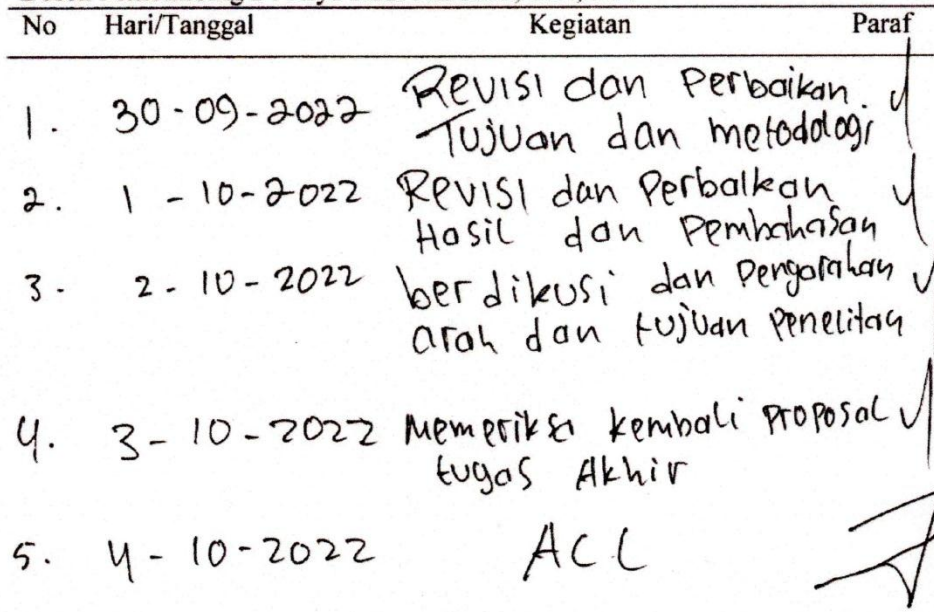 No Hari/Tanggal Kegiatan Paraf
1. 30-09-2022 Revisi dan Perbaikan.
Tujuan dan metodologi
2. 1-10-2022 Revisi dan Perbaikan
Hasil dan Pembahasan
3. 2-10-2022 berdikusi dan Pengarahan
arah dan tujuan Penelitian
4. 3-10-2022 Memeriksa kembali proposal
tugas Akhir
5. 4-10-2022 ACC